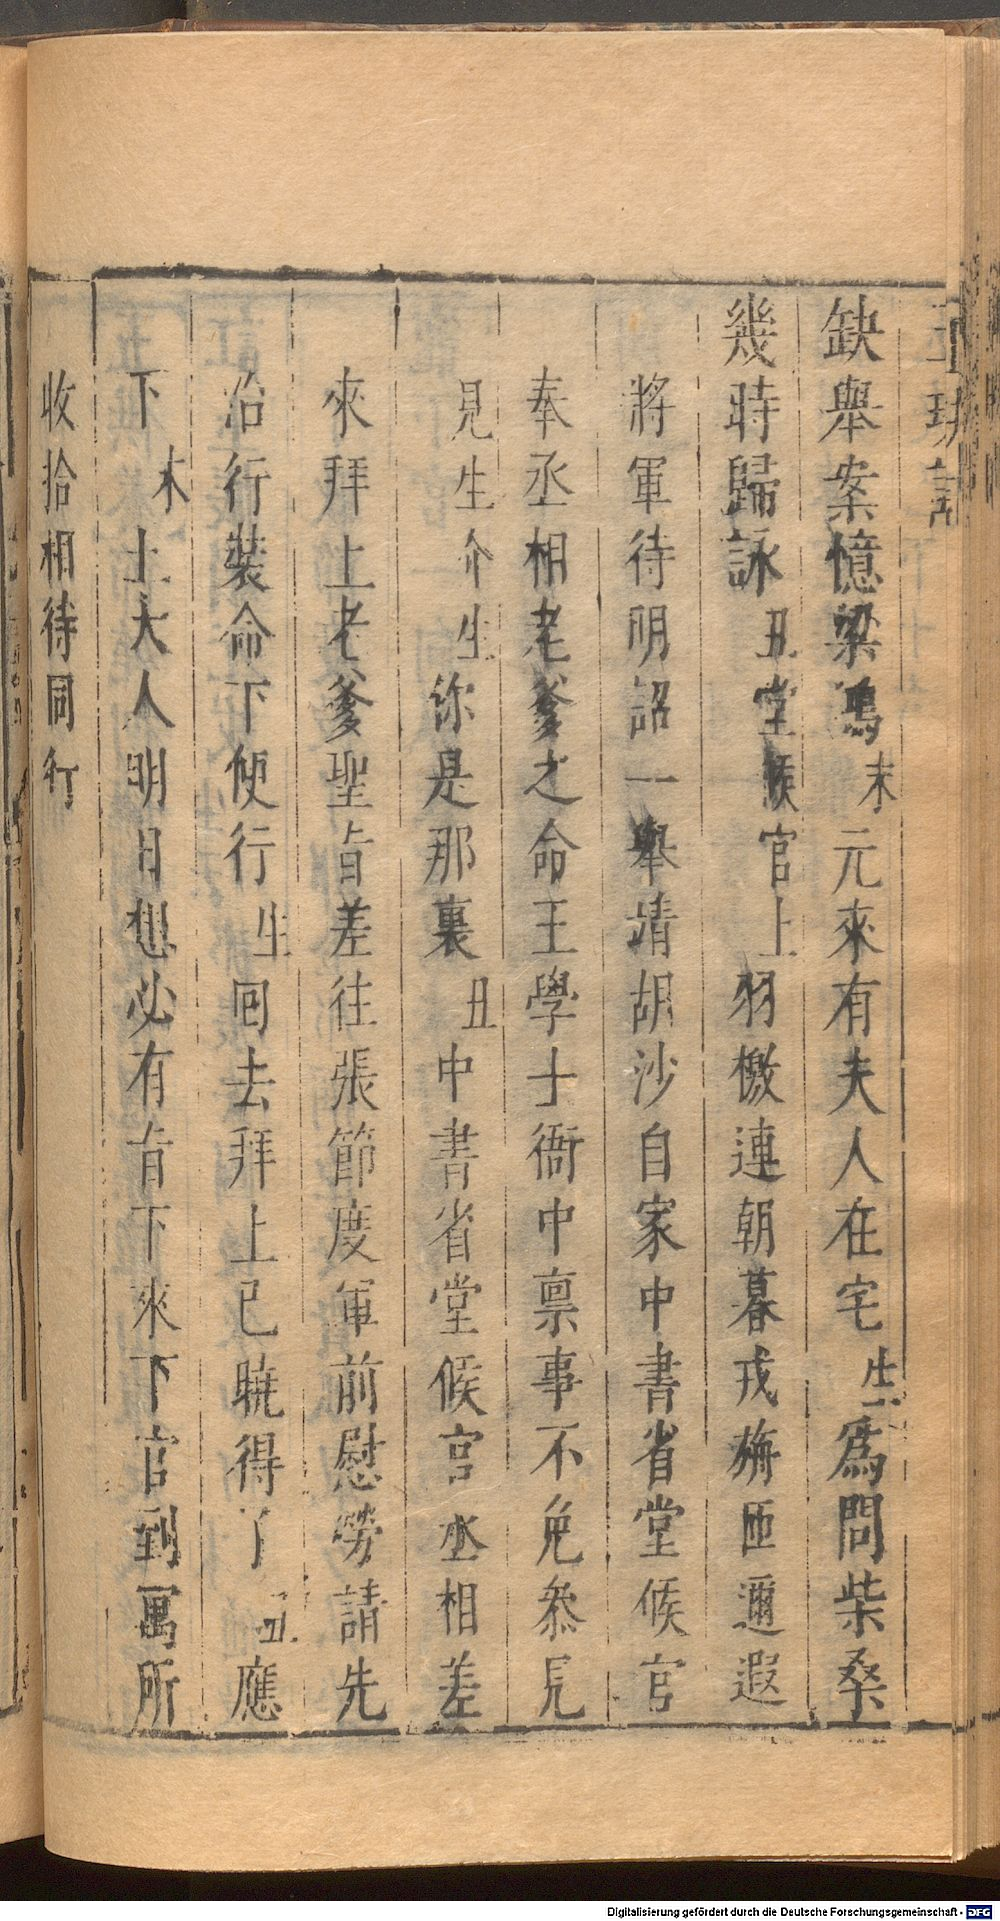 缺舉案憶梁鴻末元來有夫人在宅生爲問柴桑
幾時歸詠丑堂候官上羽檄連朝暮戎旃匝邇遐
將軍待明詔一舉靖胡沙自家中書省堂候官
奉丞相老爹之命王學士衙中禀事不免叅見
見生介生你是那裏丑中書省堂候官丞相差
來拜上老爹聖旨差往張節度軍前慰勞請先
冶行裝命下便行生囘去拜上已曉得了丑應
下末土大人明日想必有旨下來下官到寓所
收拾相待同行
Digitalisierung gefördert durch die Deutsche Forschungsgemeinschaft - DFG